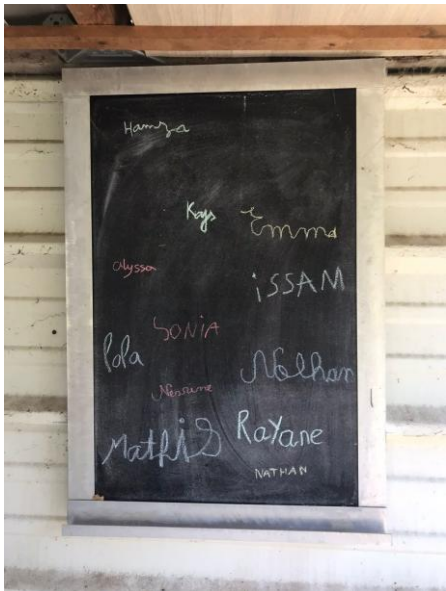 Hamza
Kays
Emma
Alyssa
iSSAM
SONiA
Lola
Nolhan
Nesrine
RaYane
MathiS
NATHAN